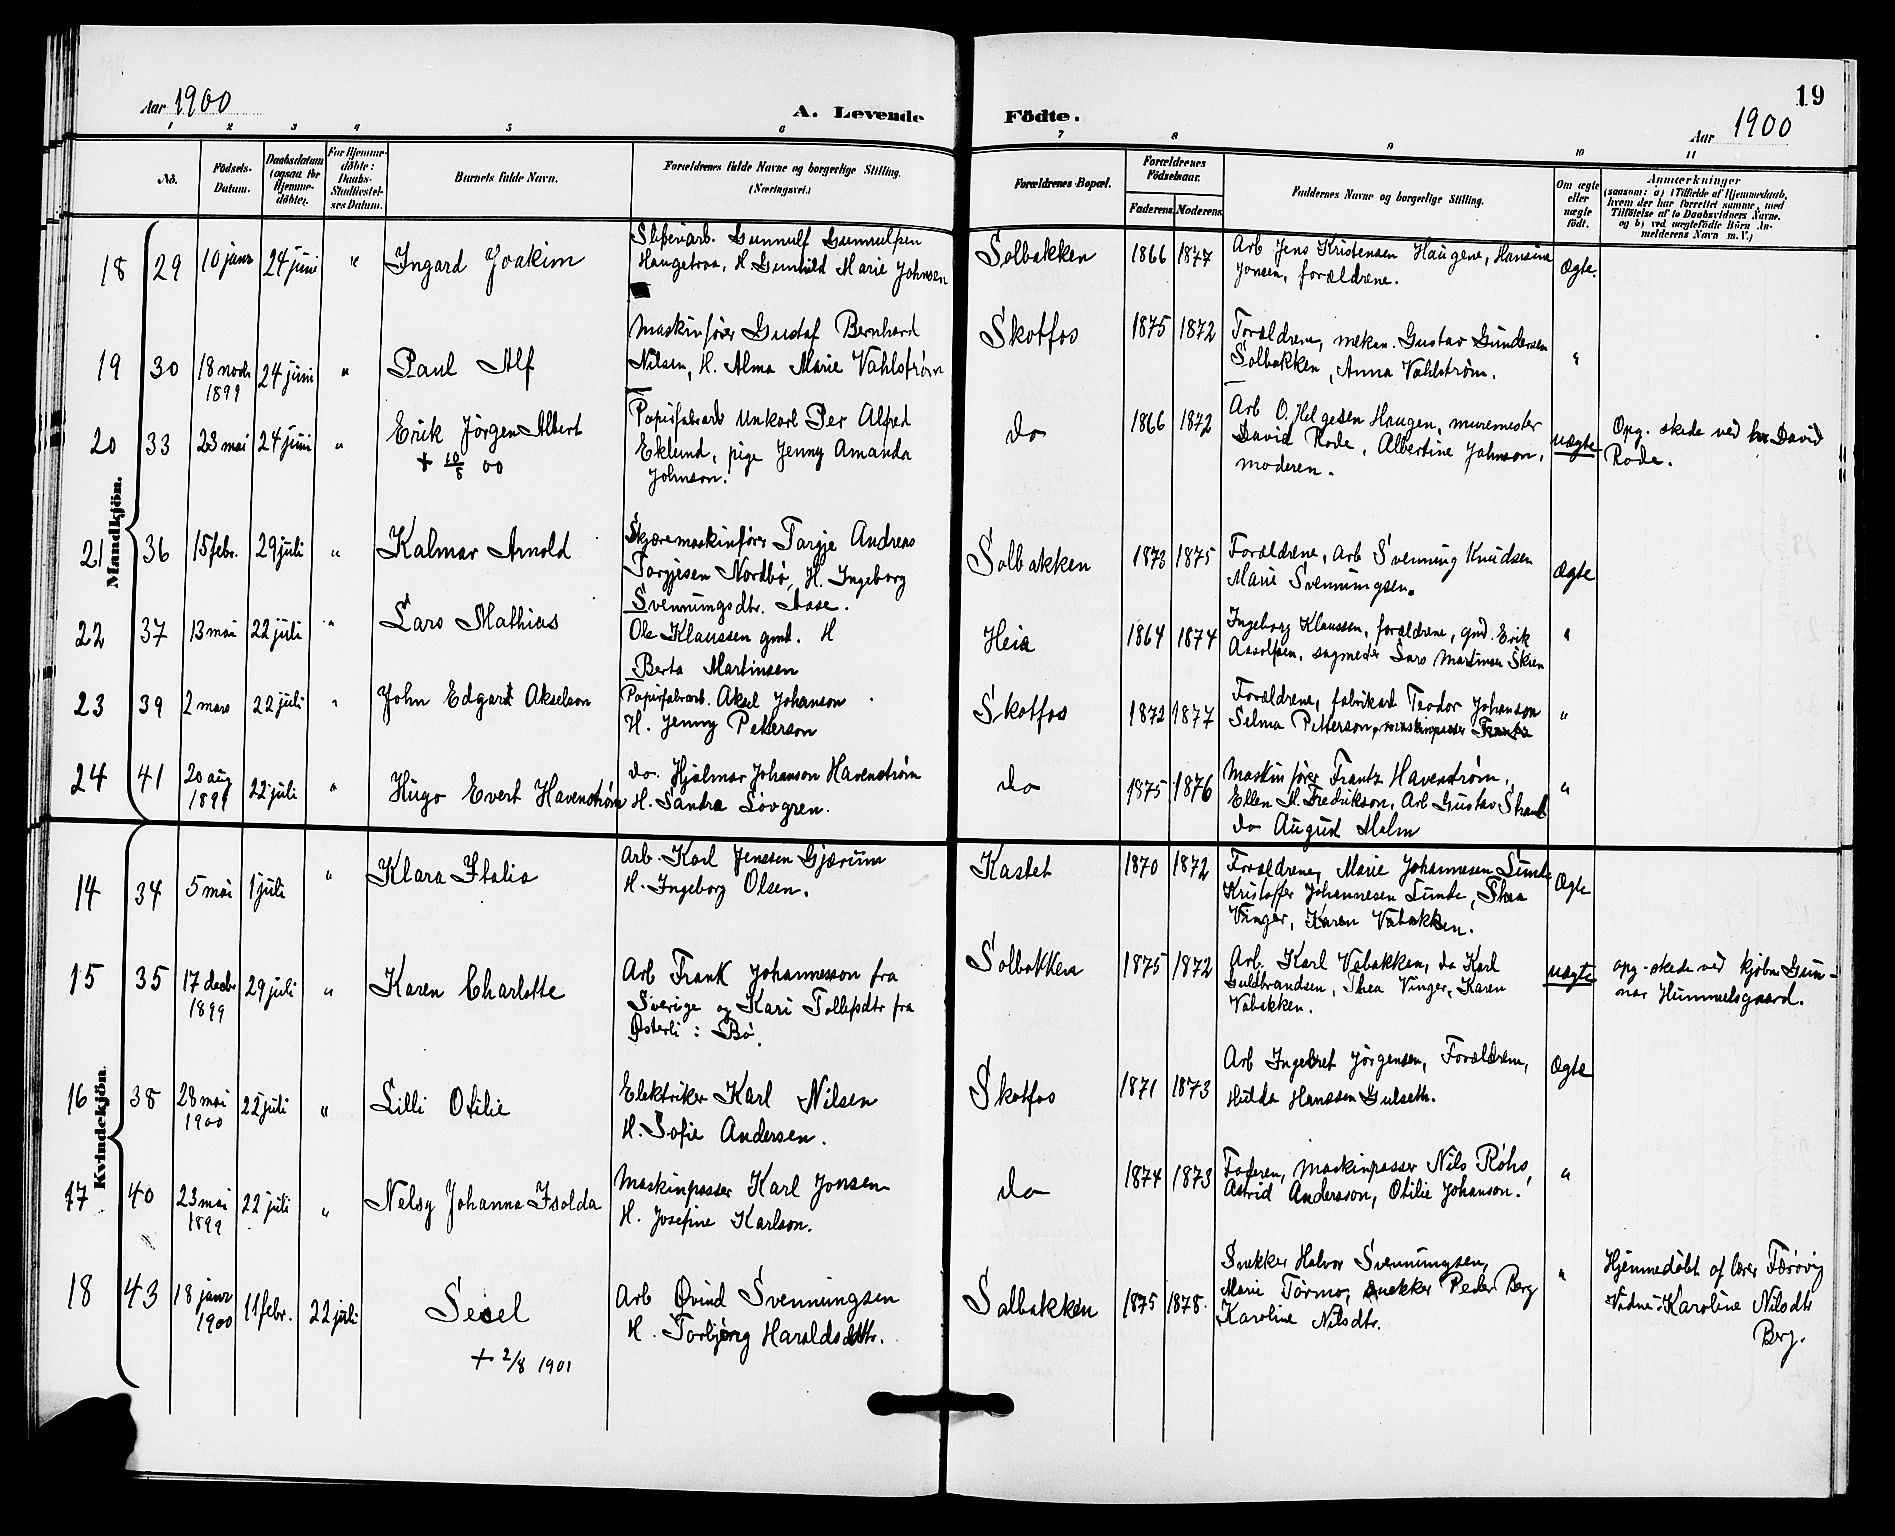 19
Aar 1900
A. Levende Födte.
Aar 1900
1 2 3 4 5 6 7 8 9 10 11
No.
Födsels-
Datum.
Daabsdatum
(ogsaa for
Hjemme-
døbte).
For Hjemme-
døbte:
Daabs-
Stadfæstel-
ses Datum.
Barnets fulde Navn.
Forældrenes fulde Navne og borgerlige Stilling.
(Næringsvei.)
Forældrenes Bopæl.
Forældrenes
Födselsaar.
Faderens Moderens
Faddernes Navne og borgerlige Stilling.
Om ægte
eller
uægte
födt.
Anmærkninger
(saasom: a) i Tilfælde af Hjemmedaab,
hvem der har forrettet samme, med
Tilföielse af to Daabsvidners Navne.
og b) ved uægtefödte Börn An-
melderens Navn m. V.)
Mandkjön.
18 29 10 janr 24 juni " Ingard Joakim
Sliberiarb. Gunnulf Gunnulfsen
Haugetraa, H. Gunhild Marie Johnsen
Solbakken 1866 1877
Arb Jens Kristensen Haugene, Hansine
Jonsen, forældrene.
Ægte.
19 30 18 novbr 24 juni " Paul Alf
1899
Maskinfører Gustaf Bernhard
Nilsen, H. Alma Marie Vahlstrøm
Skotfos 1875 1872
Forældrene, mekan. Gustav Gundersen
Solbakken, Anna Vahlstrøm.
"
20 33 23 mai 24 juni " Erik Jörgen Albert
+ 10/8 00
Papirfabrarb Unkarl Per Alfred
Eklund, pige Jenny Amanda
Johnson.
do 1866 1872
Arb O. Helgesen Haugen, muremester
David Rode, Albertine Johnson,
moderen.
uægte
Opg. skede ved David
Rode.
21 36 15 febr. 29 juli " Kalmar Arnold
Skjæremaskinfører Targje Andreas
Torgjesen Nordbö, H. Ingeborg
Svennungsdtr. Aase.
Solbakken 1873 1875
Forældrene, Arb Svenning Knudsen
Marie Svennungsen.
Ægte
22 37 13 mai 22 juli " Lars Mathias
Ole Klaussen gmd. H
Berta Martinsen
Heia 1864 1874
Ingeborg Klaussen, forældrene, gmd. Erik
Aasolfsen, sagmester Lars Martinsen Skien
"
23 39 2 mars 22 juli " John Edgard Akselson
Papirfabrarb. Aksel Johanson
H. Jenny Peterson
Skotfos 1872 1877
Forældrene, fabrikarb Teodor Johanson
Selma Petterson, maskinpasser Frantz
"
24 41 20 aug 22 juli " Hugo Evert Havenstrøm
1899
do. Hjalmar Johanson Havenstrøm
H. Sandra Lövgren.
do 1875 1876
Maskinfører Frantz Havenstrøm,
Ellen M. Fredrikson, Arb Gustav Strand
do August Malm
"
Kvindekjön.
14 34 5 mai 1 juli " Klara Italia
Arb. Karl Jenssen Gjærum
H. Ingeborg Olsen.
Kastet 1870 1872
Forældrene, Marie Johannesen Lunde
Kristoffer Johannesen Lunde, Thea
Vinger, Karen Vabakken.
Ægte
15 35 17 decbr 29 juli " Karen Charlotte
1899
Arb Frank Johannesson fra
Sverige og Kari Tollefsdtr fra
Østerli i Bø.
Solbakken 1875 1872
Arb. Karl Vabakken, do Karl
Guldbrandsen, Thea Vinger, Karen
Vabakken.
uægte
opg. skede ved kjöbm Gun-
nar Hummelsgaard.
16 38 28 mai 22 juli " Lilli Otilie
1900
Elektriker Karl Nilsen
H. Sofie Andersen.
Skotfos 1871 1873
Arb Ingebret Jörgensen, Forældrene,
Hulda Hanssen Gulseth.
Ægte
17 40 23 mai 22 juli " Nelsy Johanna Isolda
1899
Maskinpasser Karl Jonsen
H. Josefine Karlson.
do 1874 1873
Faderen, Maskinpasser Nils Röhs,
Astrid Andersson, Otilie Johanson.
"
18 43 18 janr 11 febr. 22 juli Sissel
1900
+ 2/8 1901
Arb Øvind Svennungsen
H. Torbjörg Haraldsdtr.
Solbakken 1875 1878.
Snekker Halvor Svennungsen,
Marie Tormo, snekker Peder Berg
Karoline Nilsdtr.
"
Hjemmedöbt af lærer Færøvig
Vidne: Karoline Nilsdtr
Berg.